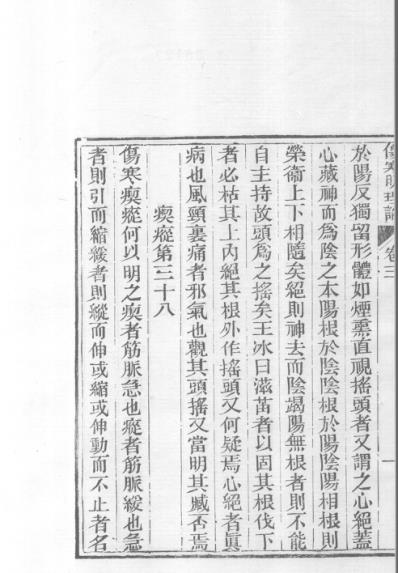 傷寒明理論 卷三 一
於陽反獨留形體如煙熏直視搖頭者又謂之心絕蓋
心藏神而爲陰之本陽根於陰陰根於陽陰陽相根則
榮衞上下相隨矣絕則神去而陰竭陽無根者則不能
自主持故頭爲之搖矣王冰曰滋苗者以固其根伐下
者必枯其上內絕其根外作搖頭又何疑焉心絕者眞
病也風頸裏痛者邪氣也觀其頭搖又當明其臧否焉
瘈瘲第三十八
傷寒瘈瘲何以明之瘈者筋脈急也瘲者筋脈緩也急
者則引而縮緩者則縱而伸或縮或伸動而不止者名